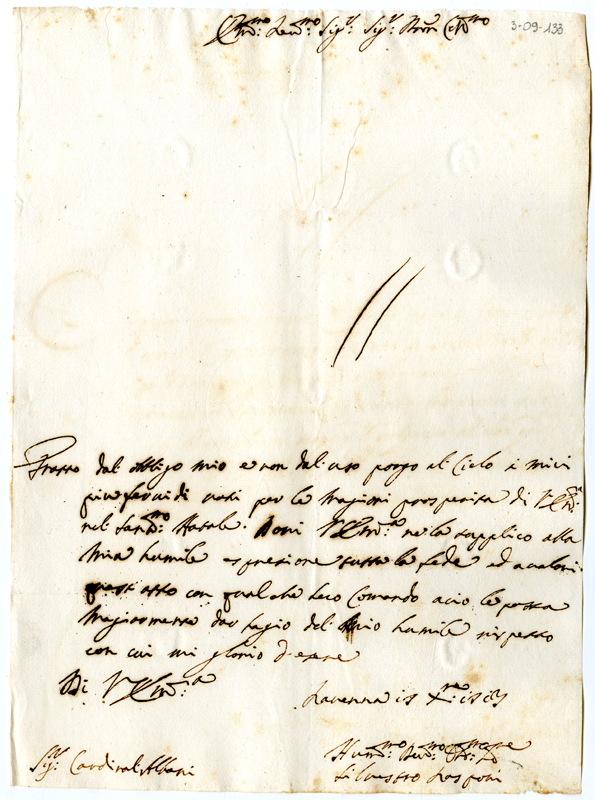 Em.mo Rev.mo Sig.r Sig.r Pron Col.mo
3-09-133
Tratto dal obbligo mio e non dal uso porgo al Cielo i miei
piu fervidi voti per le magiori prosperita di V.Em.a
nel San.mo Natale. Doni V.Em.a ne la supplico alla
mia humile espresione tutta la fede ed avalori
quest atto con qual che Suo Comando acio le possa
magiormente dar sagio del mio humile rispetto
con cui mi glorio d'esere
Di V.Em.a
Ravenna is X.re
Sig.r Cardinal Albani
Hum.mo Dev.mo
Silvestro Rasponi